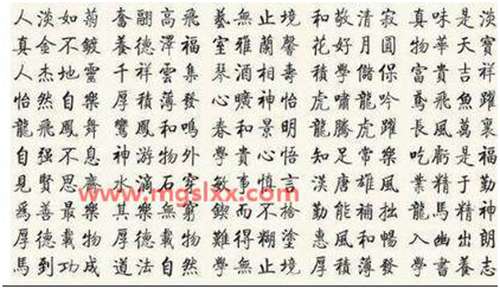 人淡如菊 奮翮高飛 藝無止境 和敬清寂 真味是淡
真金不鍍 養德澤福 室雅蘭馨 花好月圓 物華天寶
人杰地靈 千祥雲集 琴酒 壽 學儲 富貴吉祥
怡然自樂 厚積薄發 心曠神怡 虎嘯龍吟 鳶飛魚躍
龍飛鳳舞 鸞鳳和鳴 春和景明 龍騰虎躍 長風萬裏
自强不息 神游物外 學貴心悟 知足常樂 吃虧是福
見賢思齊 水滴石穿 敏事慎言 漢唐雄風 業精于勤
www.mgslxx.com
爲善最樂 其樂無窮 鍥而不捨 勤能補拙 龍馬精神
厚德載物 厚德載物 難得糊塗 惠風和暢 入幽出朗
馬到功成 道法自然 學無止境 厚積薄發 學書養志